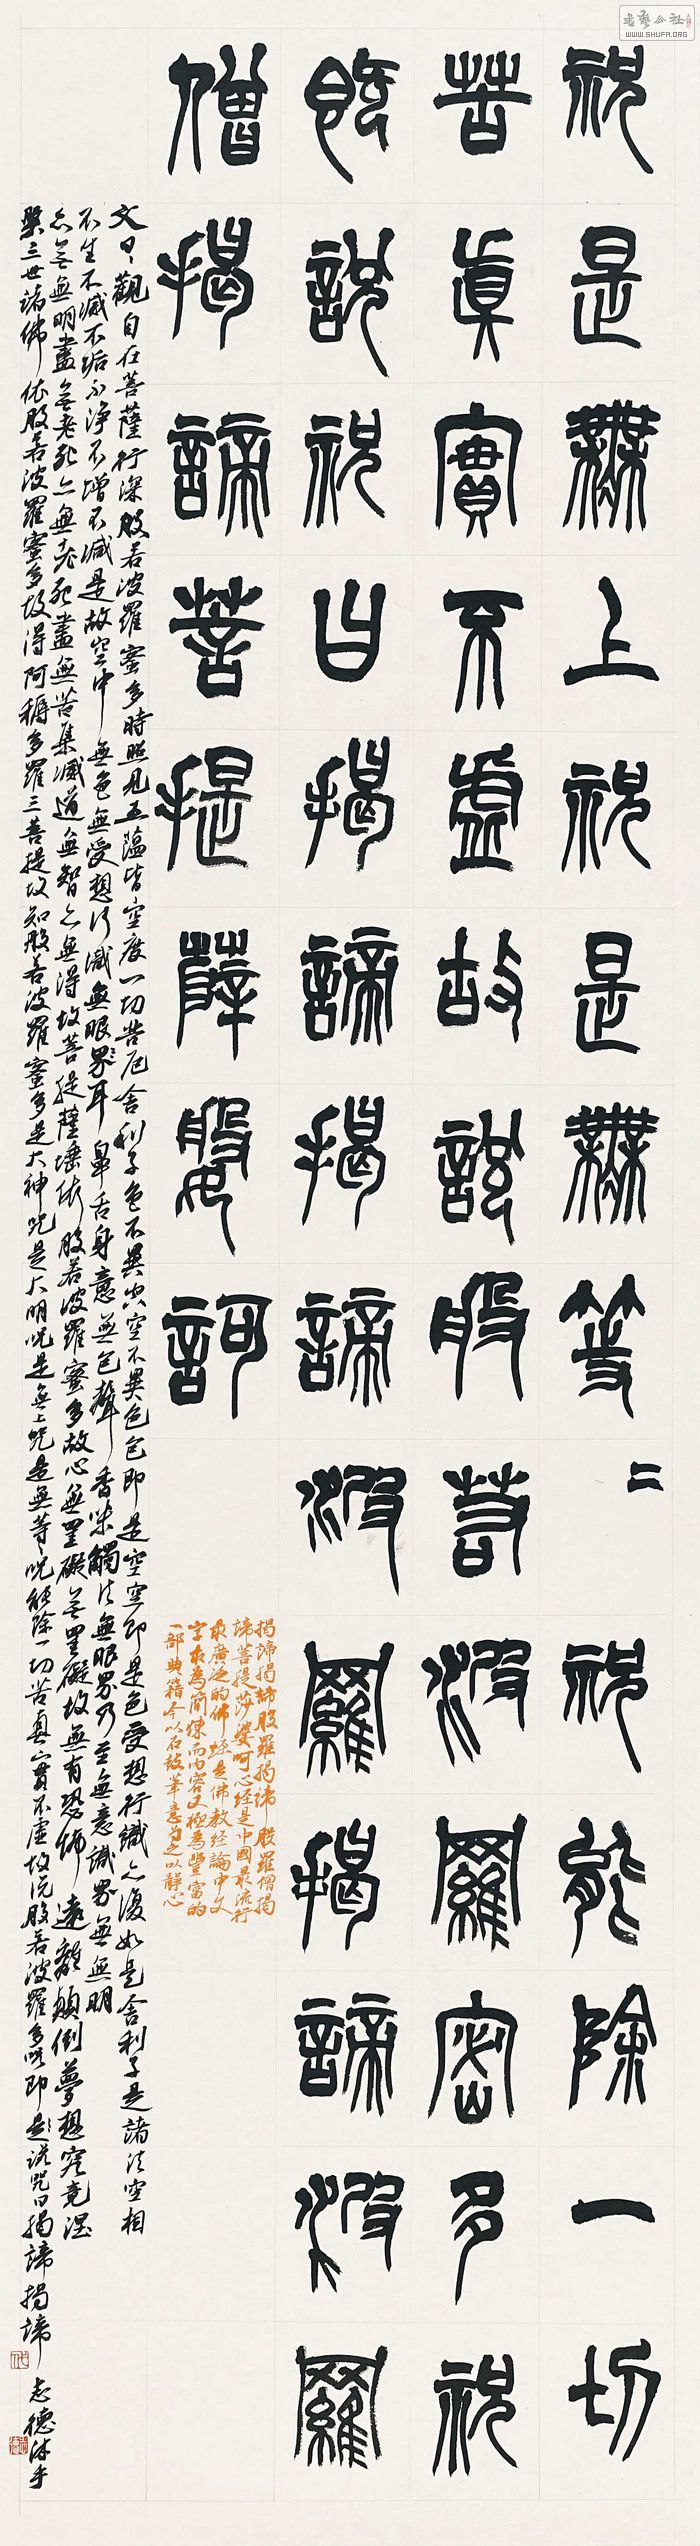 書藝公社
WWW.SHUFA.ORG
祝是無上祝是無等二祝能除一切
苦眞實不虛故說般若波羅密多祝
即說祝曰揭諦揭諦波羅揭諦波羅
僧揭諦菩提薩婆訶
揭諦揭諦般羅揭諦般羅僧揭
諦菩提莎婆呵心經是中國最流行
最廣泛的佛經是佛教經論中文
字最為簡煉而內容又極為豐富的
一部典籍今以石鼓筆意為之以靜心
文曰觀自在菩薩行深般若波羅蜜多時照見五蘊皆空度一切苦厄舍利子色不異空空不異色色即是空空即是色受想行識亦復如是舍利子是諸法空相
不生不滅不垢不淨不增不減是故空中無色無受想行識無眼界耳鼻舌身意無色聲香味觸法無眼界乃至無意識界無無明
亦無無明盡無老死亦無老死盡無苦集滅道無智亦無得故菩提薩埵依般若波羅蜜多故心無罣礙無罣礙故無有恐怖遠離顛倒夢想究竟涅
槃三世諸佛依般若波羅蜜多故得阿耨多羅三菩提故知般若波羅蜜多是大神咒是大明咒是無上咒是無等咒能除一切苦真實不虛故說般若波羅多咒即是說咒曰揭諦揭諦
志德沐手